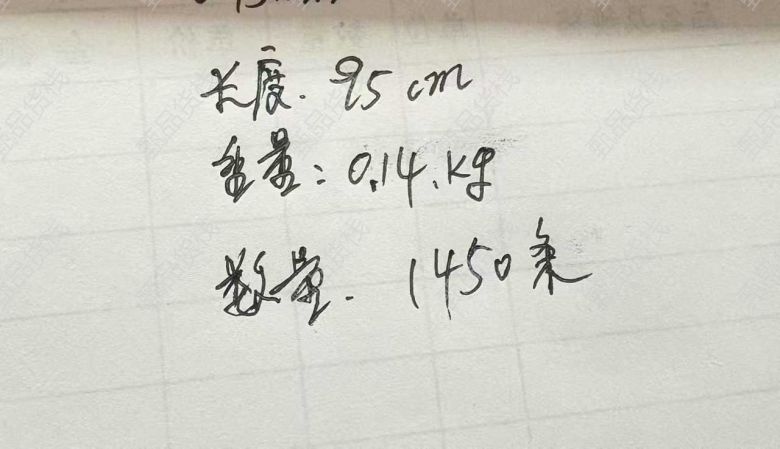 长度. 95cm
重量: 0.14.kg
数量. 1450条